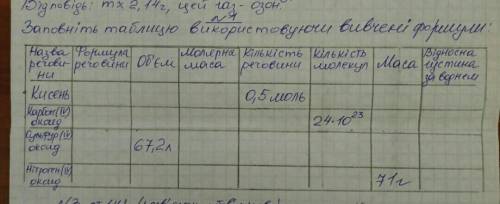 Відповідь: m x 2,14г, цей газ - озон.
№1
Заповніть таблицю використовуючи вивчені формули:
Назва речови- ни | Формула речовини | Об'єм | Молярна маса | Кількість речовини | Кількість молекул | Маса | Відносна густина за воднем
Кисень | 0,5 моль
Карбон(IV) оксид | 24·10²³
Сульфур(IV) оксид | 67,2л
Нітроген(IV) оксид | 71г